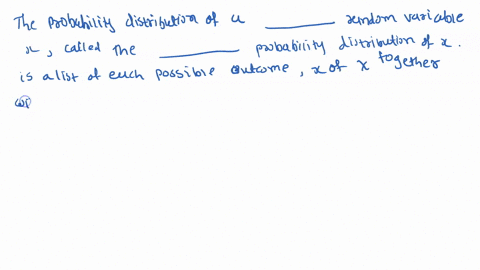 The probability distribution of a ______ random variable
x, called the ______ probability distribution of x.
is a list of each possible outcome, x of X together